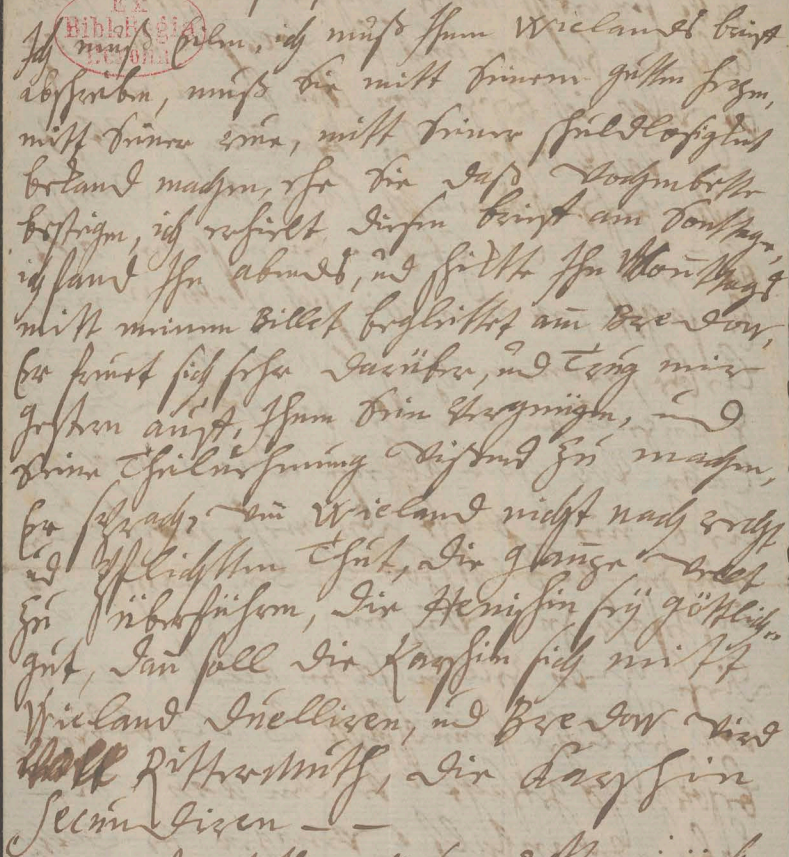 Ex
Bibl. Regia
Berolin.
Ich muß Eilen, ich muß Ihnen Wielands brieff
abschreiben, muß Sie mitt Seinem gutten herzen,
mitt Seiner reue, mitt Seiner schuldlosigkeit
bekand machen, ehe Sie daß Wochenbette
besteigen, ich erhielt diesen brieff am Sonttage,
ich fand Ihn abends, und schikte Ihn Monttags
mitt meinem Billet begleittet ann Bredow,
Er freuet sich sehr darüber, und Trug mir
gestern auff, Ihnen Sein Vergnügen, und
Seine Theilnehmung wißend zu machen,
Er sprach, wen Wieland nicht nach recht
und Pflichtten Thut, die ganze welt
zu überführen, die Henschin sey göttlich
gut, dan soll die Karschin sich mitt
Wieland Duelliren, und Bredow wird
Voll Rittermuth, die Karschin
Secundiren — —